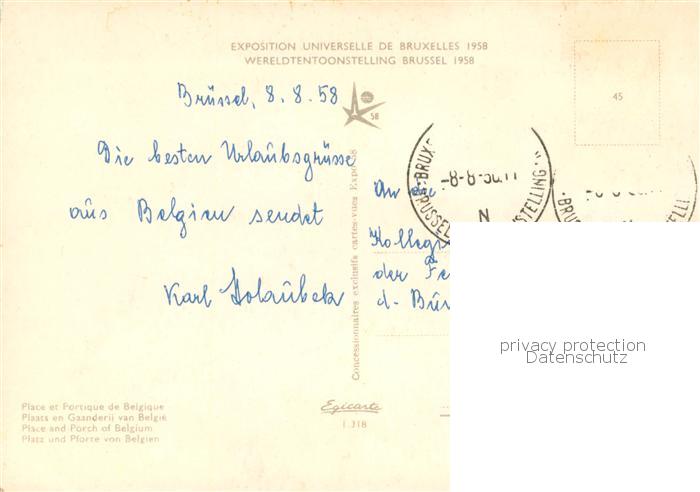 EXPOSITION UNIVERSELLE DE BRUXELLES 1958
WERELDTENTOONSTELLING BRUSSEL 1958
45
58
Brüssel, 8. 8. 58
Die besten Urlaubsgrüsse
aus Belgien sendet
Karl
Concessionnaires exclusifs cartes-vues Expo 58
-8-8-
N
An die
der
d.
Place et Portique de Belgique
Plaats en Gaanderij van België
Place and Porch of Belgium
Platz und Pforte von Belgien
Egicarte
1.318
privacy protection
Datenschutz